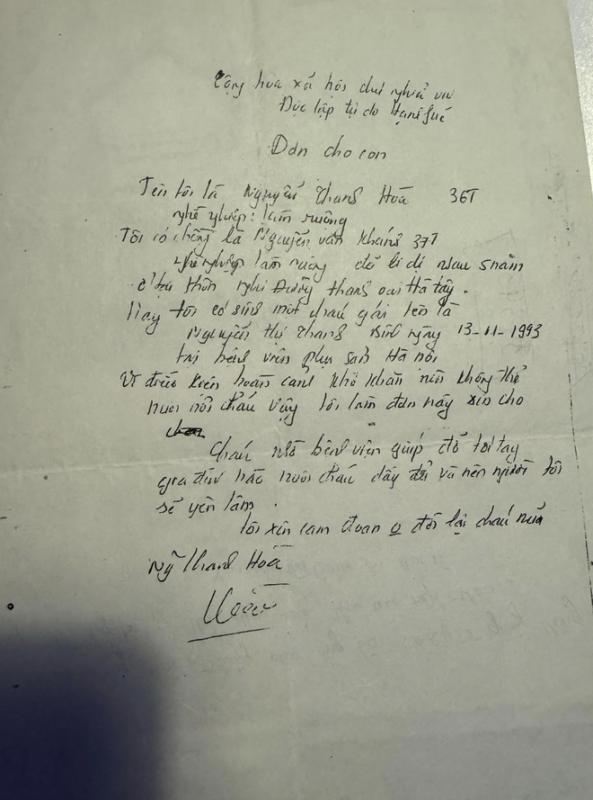 Cộng hoà xã hội chủ nghĩa VN
Độc lập tự do Hạnh Phúc
Đơn cho con
Tên tôi là Nguyễn Thanh Hoà 36T
nghề nghiệp: làm ruộng
Tôi có chồng là Nguyễn văn Khánh 37T
nghề nghiệp làm ruộng đã li dị nhau 5 năm
thôn thanh oai Hà tây.
Nay tôi có sinh một cháu gái tên là
Nguyễn thị Thanh sinh ngày 13-11-1993
tại bệnh viện phụ sản Hà nội
Vì điều kiện hoàn cảnh khó khăn nên không thể
nuôi nổi cháu vậy tôi làm đơn này xin cho
cháu nhờ bệnh viện giúp đỡ tới tay
gia đình nào nuôi cháu đầy đủ và nên người tôi
sẽ yên tâm.
tôi xin cam đoan o đòi lại cháu nữa
Ng Thanh Hoà
Hoà